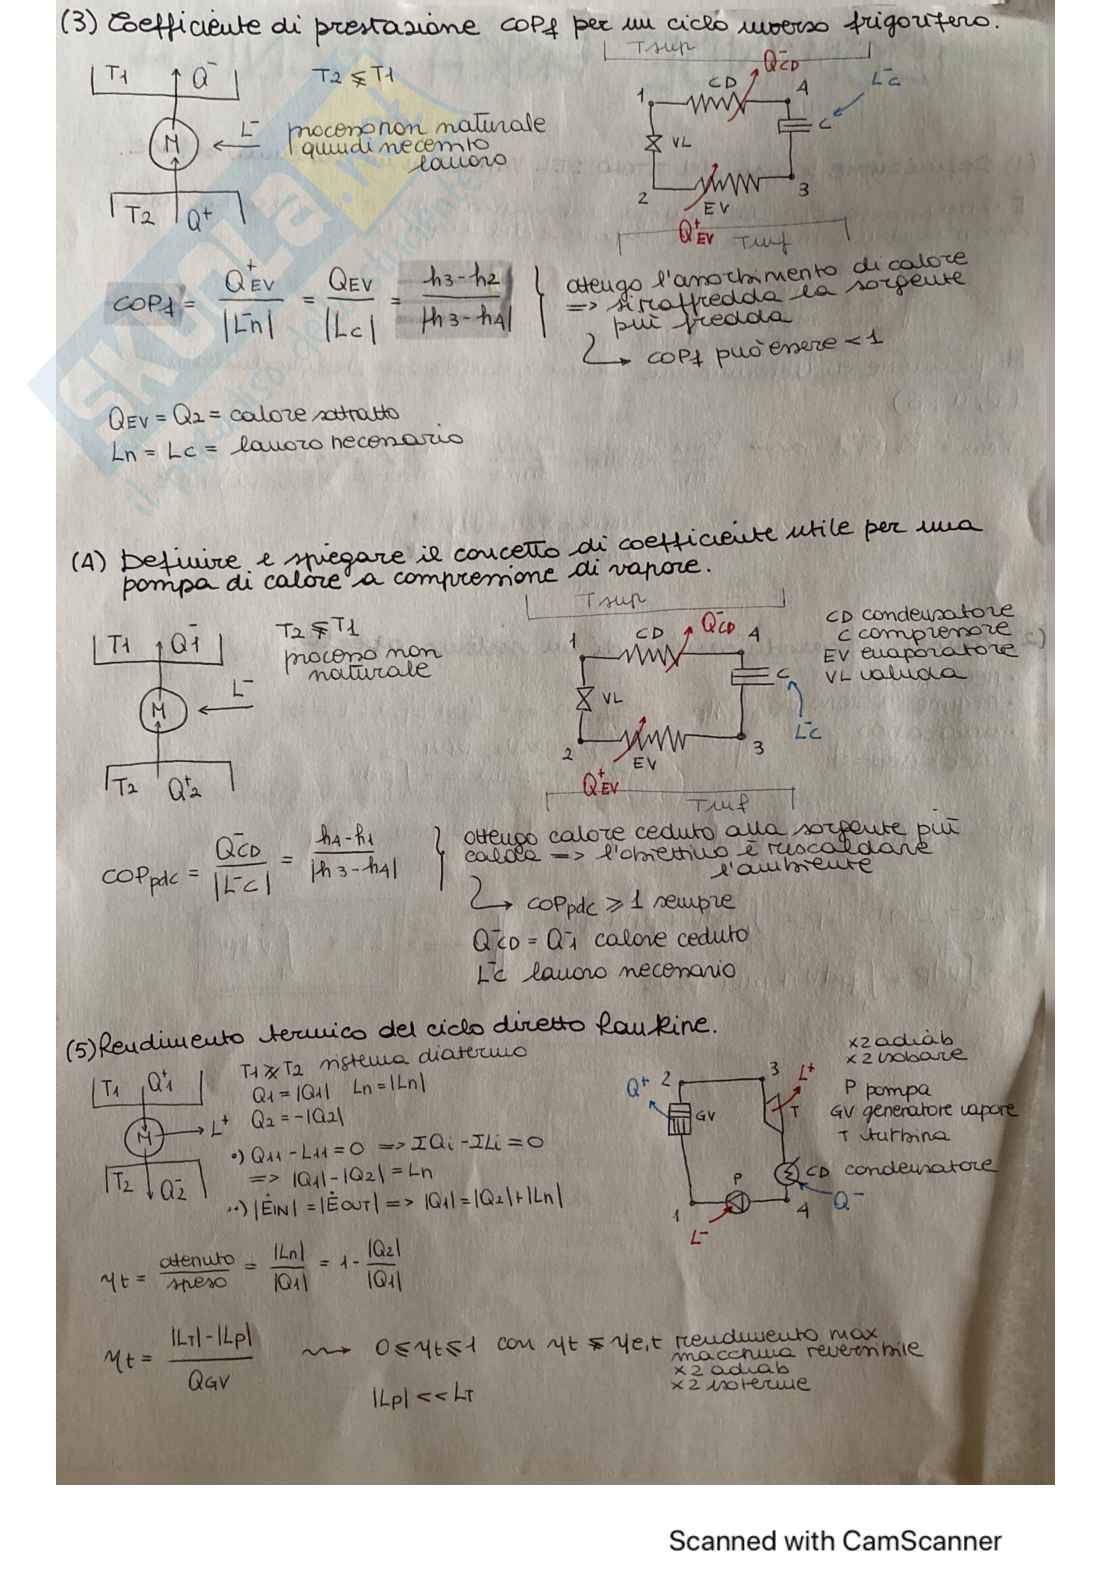 (3) Coefficiente di prestazione COPf per un ciclo inverso frigorifero.
T1 Q-
T2 ≨ T1
M L-
processo non naturale
quindi necessito
lavoro
T2 Q+
Tsup
Q-CD
CD
1 4 L-C
VL C
2 3
EV
Q+EV Tinf
COPf = Q+EV / |L-n| = QEV / |LC| = h3-h2 / |h3-h4|
ottengo l'assorbimento di calore
=> si raffredda la sorgente
più fredda
↳ COPf può essere < 1
QEV = Q2 = calore sottratto
Ln = LC = lavoro necessario
(4) Definire e spiegare il concetto di coefficiente utile per una
pompa di calore a compressione di vapore.
T1 Q-1
T2 ≨ T1
processo non
naturale
M L-
T2 Q+2
Tsup
1 CD Q-CD 4
VL C
L-C
2 3
EV
Q+EV
Tinf
CD condensatore
C compressore
EV evaporatore
VL valvola
COPpdc = Q-CD / |L-C| = h4-h1 / |h3-h4|
ottengo calore ceduto alla sorgente più
calda => l'obiettivo è riscaldare
l'ambiente
↳ COPpdc ⩾ 1 sempre
Q-CD = Q-1 calore ceduto
L-C lavoro necessario
(5) Rendimento termico del ciclo diretto Rankine.
T1 Q+1
M → L+
T2 Q-2
T1 ≩ T2 sistema diatermo
Q1 = |Q1| Ln = |Ln|
Q2 = -|Q2|
•) Q11 - L11 = 0 => ΣQi - ΣLi = 0
=> |Q1| - |Q2| = Ln
••) |ĖIN| = |ĖOUT| => |Q1| = |Q2| + |Ln|
x2 adiab
x2 isobare
P pompa
GV generatore vapore
T turbina
CD condensatore
Q+ 2 3 L+
GV T
P
1 4 Q-
L-
ηt = ottenuto / speso = |Ln| / |Q1| = 1 - |Q2| / |Q1|
ηt = |LT| - |Lp| / QGV
⇝ 0 ⩽ ηt ⩽ 1 con ηt ≨ ηe,t rendimento max
macchina reversibile
x2 adiab
x2 isoterme
|Lp| << LT
SKUOLA.net
Scanned with CamScanner